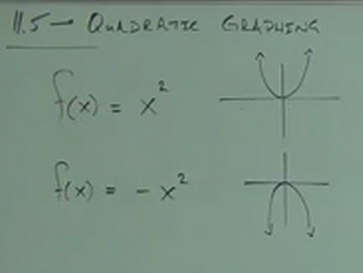 11.5 — QUADRATIC GRAPHING
f(x) = x²
f(x) = - x²